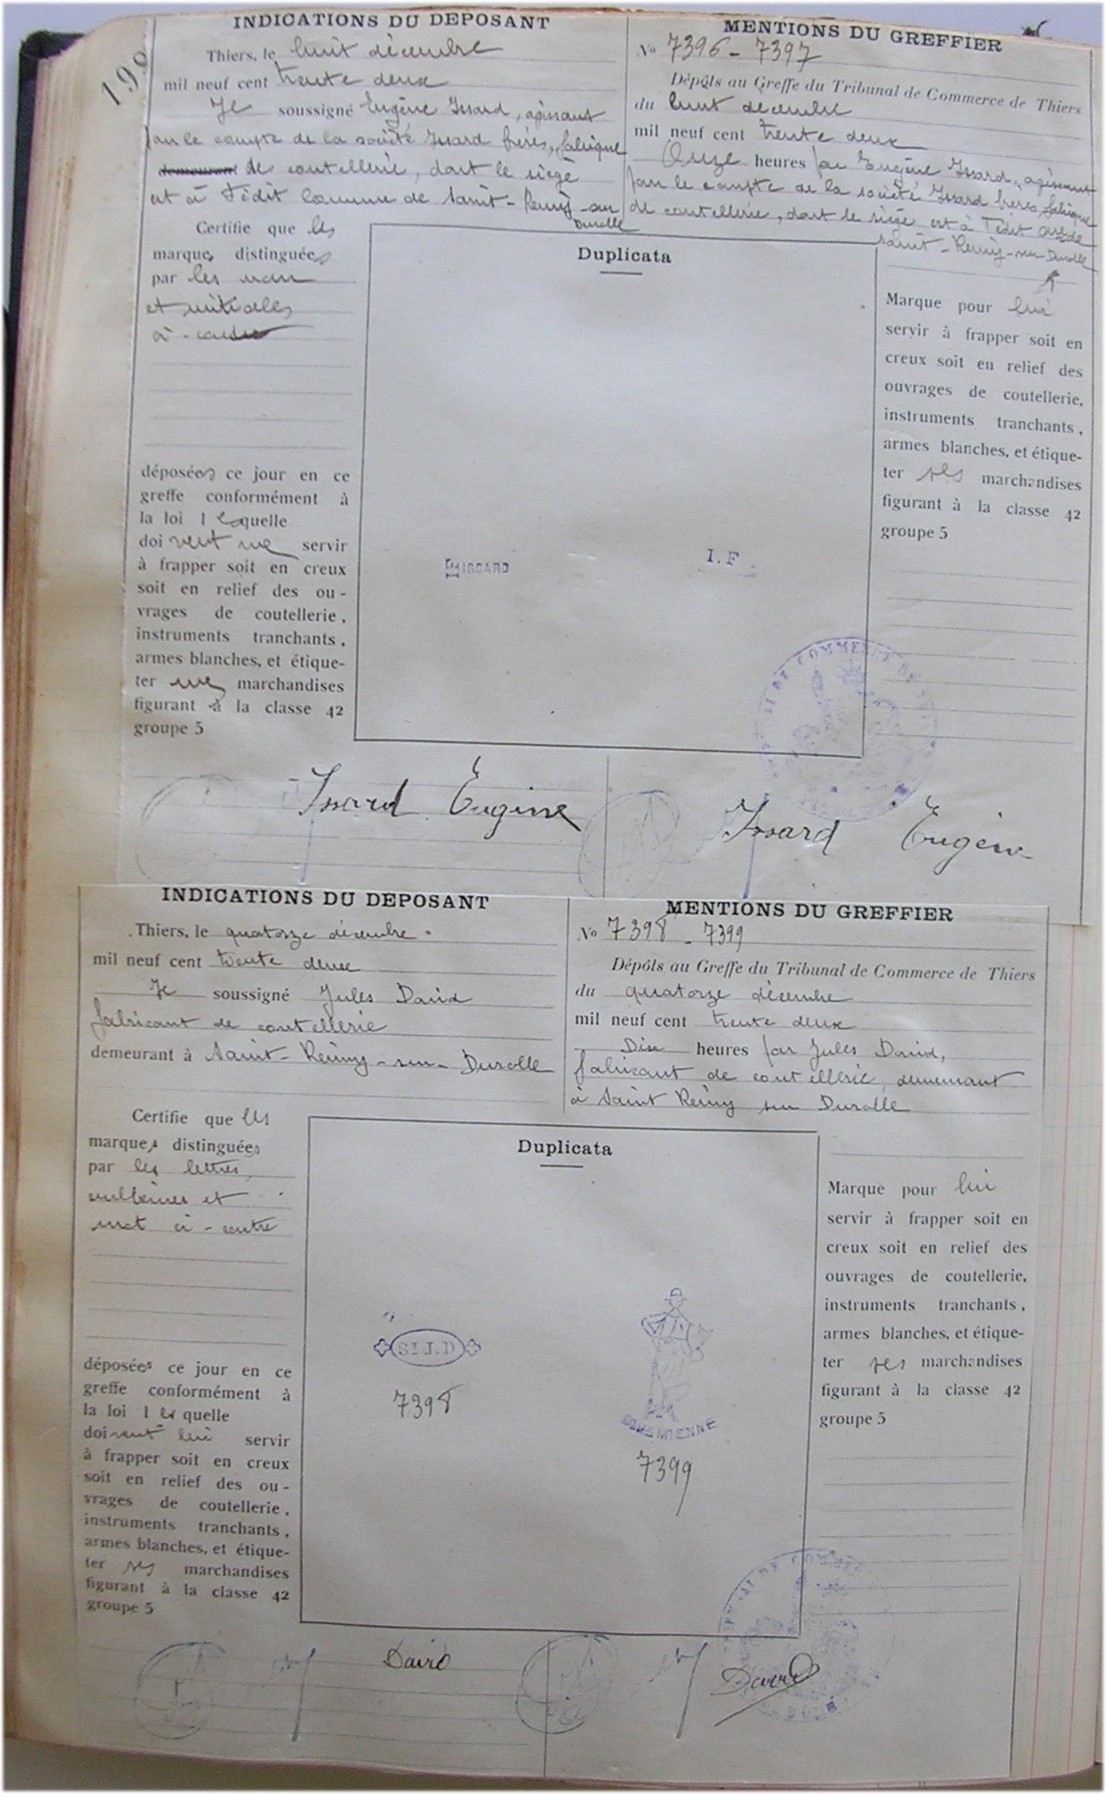 198
INDICATIONS DU DEPOSANT
Thiers, le huit décembre
mil neuf cent trente deux
Je soussigné Eugène Issard, agissant
pour le compte de la société Issard frères, fabrique
demeurant de coutellerie, dont le siège
est à Tédit commune de Saint-Remy-sur
Durolle
Certifie que les
marques distinguées
par les
et initiales
déposées ce jour en ce
greffe conformément à
la loi lesquelle
doivent me servir
à frapper soit en creux
soit en relief des ou-
vrages de coutellerie,
instruments tranchants,
armes blanches, et étique-
ter mes marchandises
figurant à la classe 42
groupe 5
MENTIONS DU GREFFIER
No 7396-7397
Dépôts au Greffe du Tribunal de Commerce de Thiers
du huit décembre
mil neuf cent trente deux
Onze heures par Eugène Issard, agissant
pour le compte de la société Issard frères fabrique
de coutellerie, dont le siège est à Tédit
Saint-Remy-sur-Durolle
Duplicata
ISSARD
I.F
Marque pour lui
servir à frapper soit en
creux soit en relief des
ouvrages de coutellerie,
instruments tranchants,
armes blanches, et étique-
ter ses marchandises
figurant à la classe 42
groupe 5
Issard Eugène
Issard Eugène
INDICATIONS DU DEPOSANT
Thiers, le quatorze décembre
mil neuf cent trente deux
Je soussigné Jules David
fabricant de coutellerie
demeurant à Saint-Remy-sur-Durolle
Certifie que les
marques distinguées
par les lettres,
emblèmes et
mot ci-contre
déposées ce jour en ce
greffe conformément à
la loi lesquelle
doivent lui servir
à frapper soit en creux
soit en relief des ou-
vrages de coutellerie,
instruments tranchants,
armes blanches, et étique-
ter ses marchandises
figurant à la classe 42
groupe 5
MENTIONS DU GREFFIER
No 7398-7399
Dépôts au Greffe du Tribunal de Commerce de Thiers
du quatorze décembre
mil neuf cent trente deux
Dix heures par Jules David,
fabricant de coutellerie, demeurant
à Saint Remy sur Durolle
Duplicata
St J.D
7398
7399
Marque pour lui
servir à frapper soit en
creux soit en relief des
ouvrages de coutellerie,
instruments tranchants,
armes blanches, et étique-
ter ses marchandises
figurant à la classe 42
groupe 5
David
David